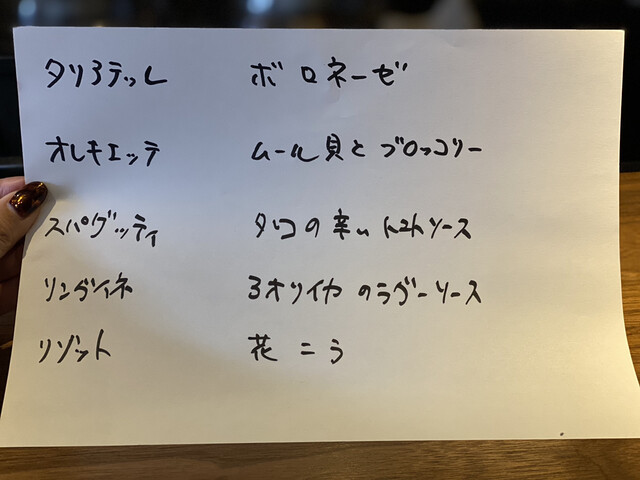 タリアテッレ ボロネーゼ
オレキエッテ ムール貝とブロッコリー
スパゲッティ タコの辛いトマトソース
リングイネ アオリイカのラグーソース
リゾット 花こう